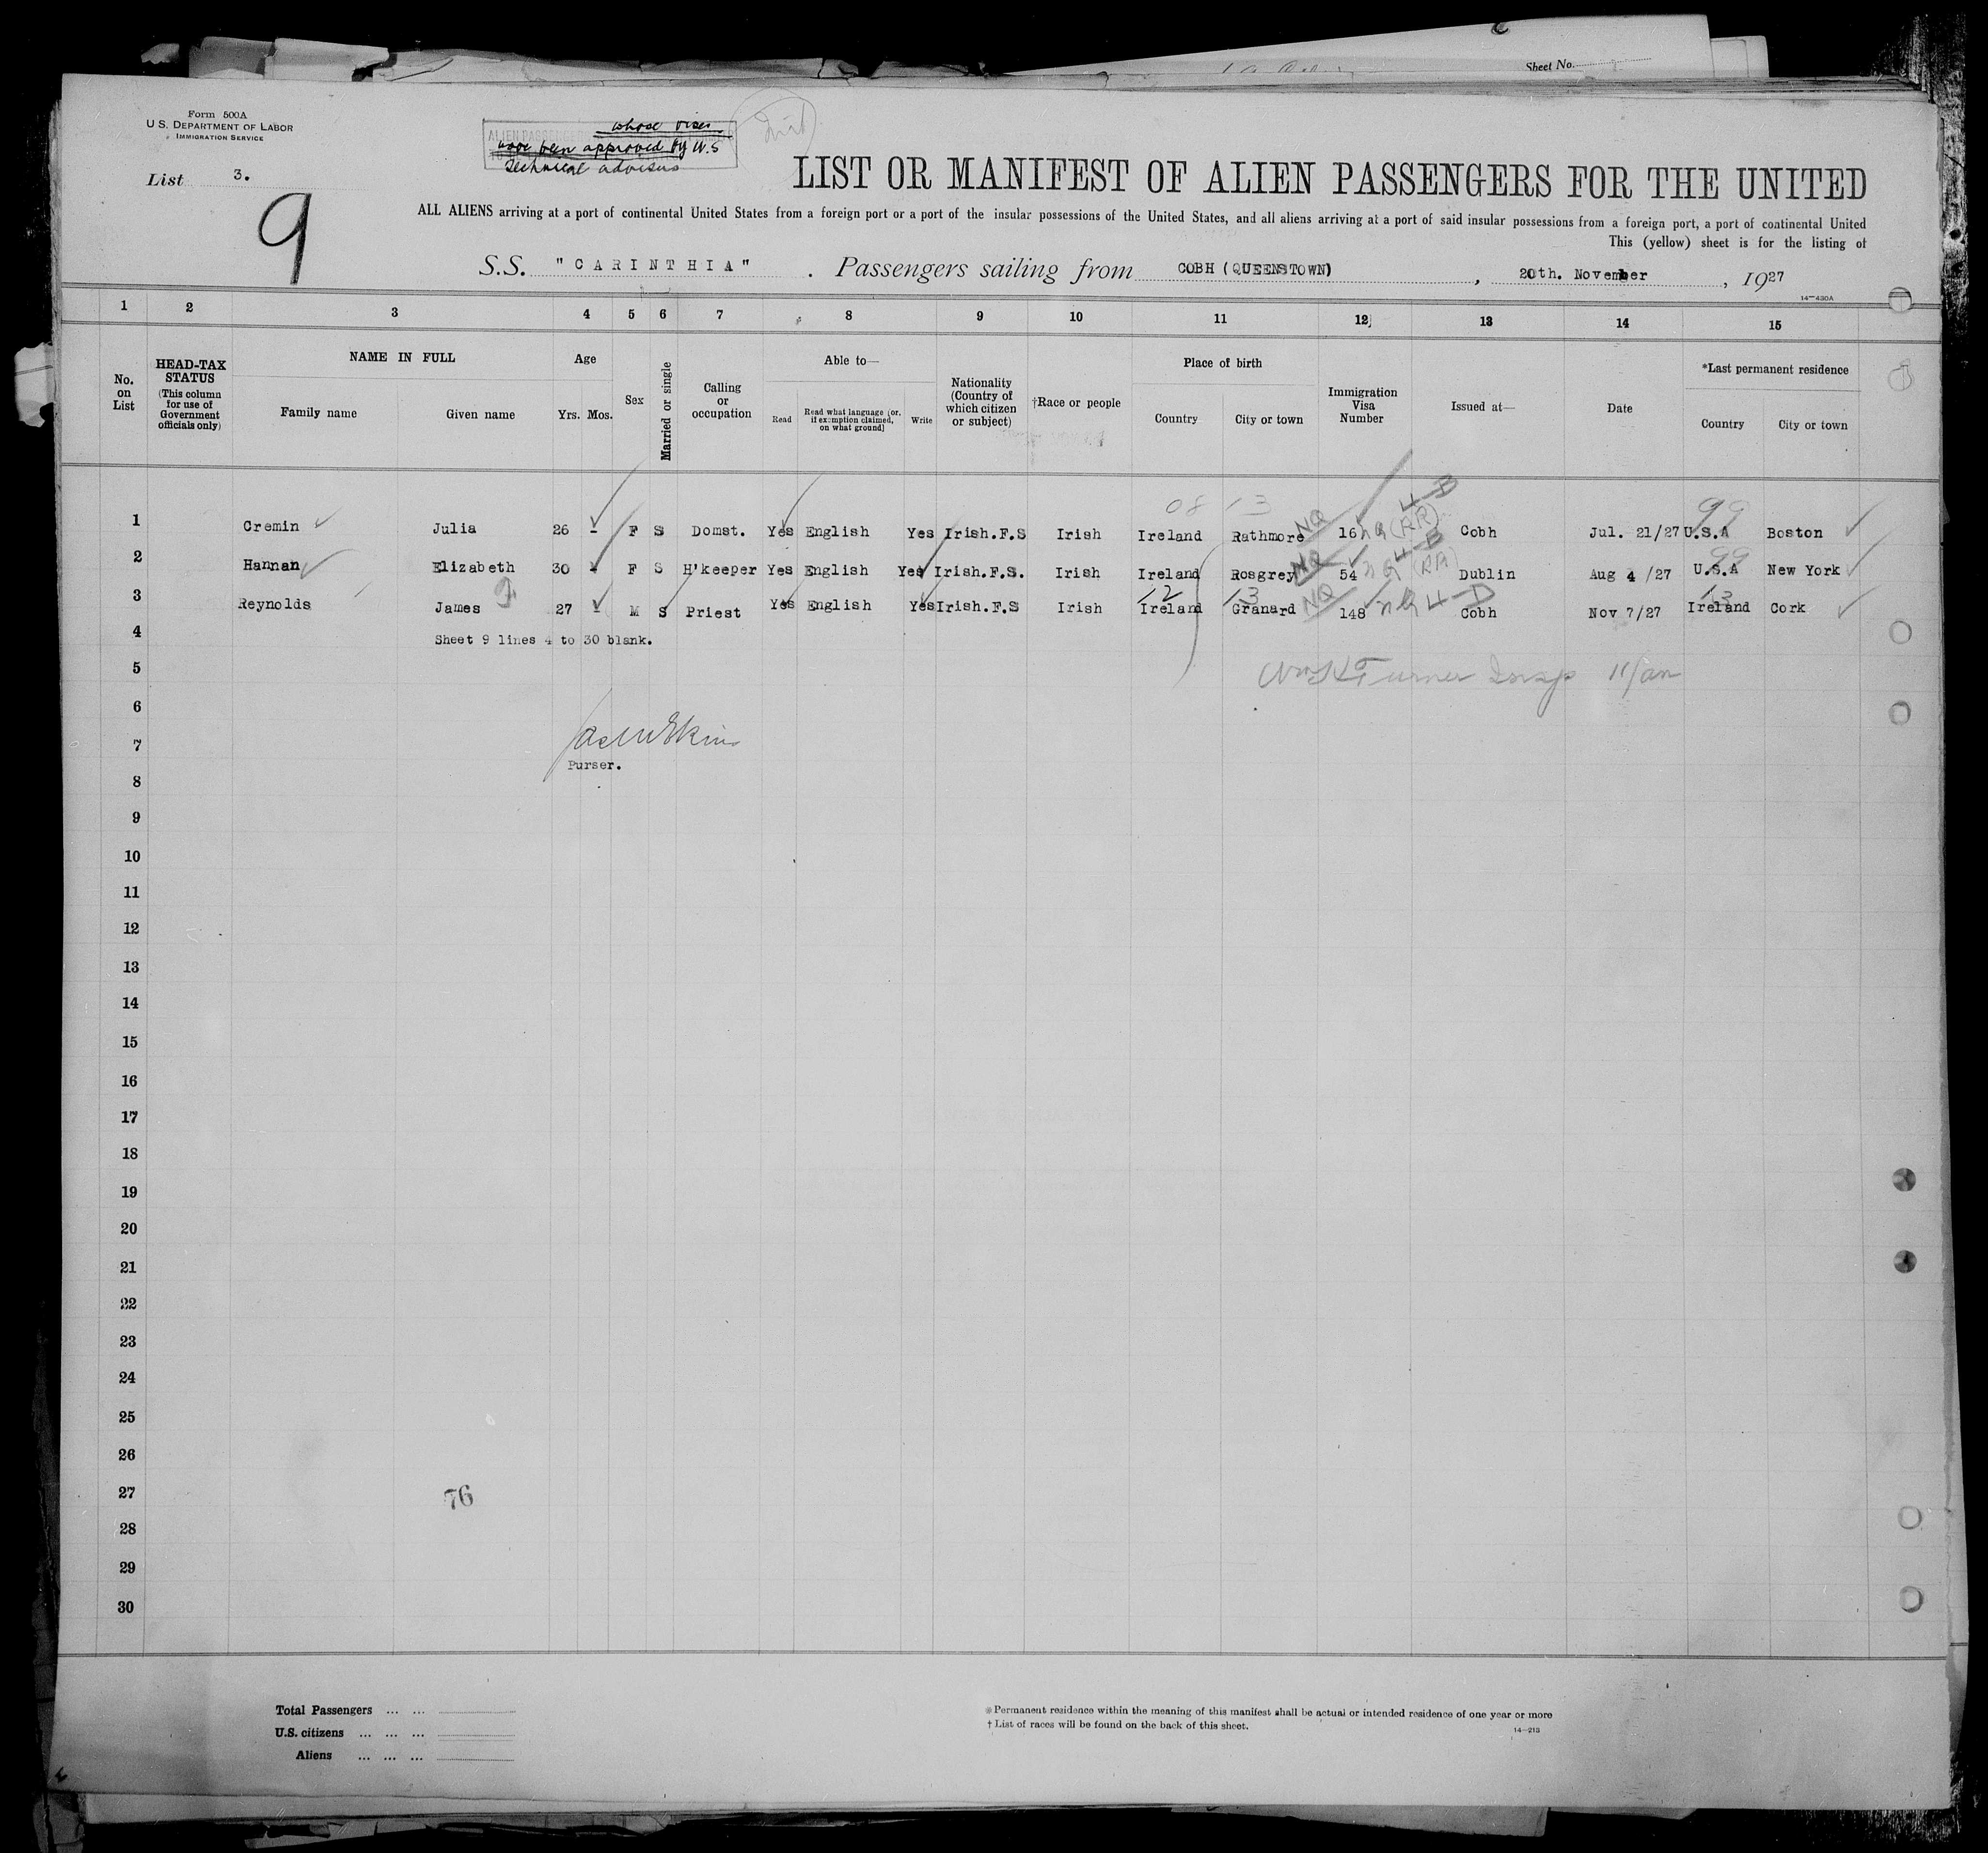 Sheet No.
Form 500A
U. S. DEPARTMENT OF LABOR
IMMIGRATION SERVICE
List 3.
9
ALIEN PASSENGERS
whose vises
have been approved by U.S
Technical advisers
LIST OR MANIFEST OF ALIEN PASSENGERS FOR THE UNITED
ALL ALIENS arriving at a port of continental United States from a foreign port or a port of the insular possessions of the United States, and all aliens arriving at a port of said insular possessions from a foreign port, a port of continental United
This (yellow) sheet is for the listing of
S.S. "CARINTHIA" . Passengers sailing from COBH (QUEENSTOWN) , 20th. November , 1927
14—430A
1 2 3 4 5 6 7 8 9 10 11 12 13 14 15
No. on List
HEAD-TAX STATUS (This column for use of Government officials only)
NAME IN FULL
Family name Given name
Age
Yrs. Mos.
Sex
Married or single
Calling or occupation
Able to—
Read Read what language (or, if exemption claimed, on what ground) Write
Nationality (Country of which citizen or subject)
†Race or people
Place of birth
Country City or town
Immigration Visa Number
Issued at—
Date
*Last permanent residence
Country City or town
08 13 4-B 99
1 Cremin Julia 26 - F S Domst. Yes English Yes Irish.F.S Irish Ireland Rathmore NQ 16 (RR) Cobh Jul. 21/27 U.S.A Boston
4-B 99
2 Hannan Elizabeth 30 - F S H'keeper Yes English Yes Irish.F.S. Irish Ireland Rosgrey NQ 54 (RR) Dublin Aug 4 /27 U.S.A New York
12 13 13
3 Reynolds James 27 - M S Priest Yes English Yes Irish.F.S Irish Ireland Granard NQ 148 4-D Cobh Nov 7/27 Ireland Cork
4 Sheet 9 lines 4 to 30 blank.
5 Turner Insp
6
7
Purser.
8
9
10
11
12
13
14
15
16
17
18
19
20
21
22
23
24
25
26
27 76
28
29
30
Total Passengers ... ...
U.S. citizens ... ... ...
Aliens ... ... ...
* Permanent residence within the meaning of this manifest shall be actual or intended residence of one year or more
† List of races will be found on the back of this sheet.
14—213